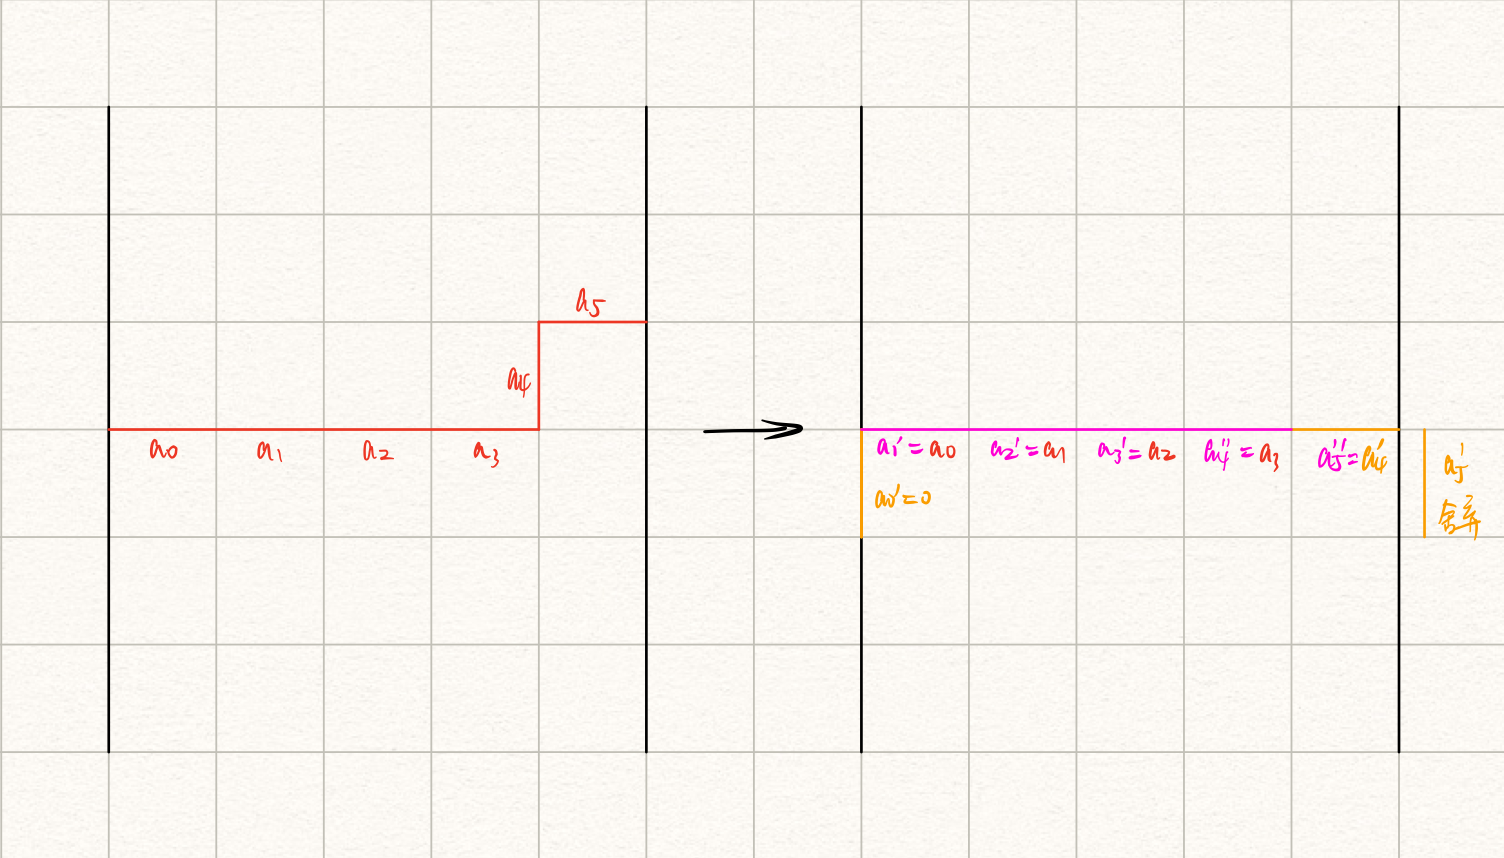 a₅
a₄
a₀ a₁ a₂ a₃
a₁' = a₀ a₂' = a₁ a₃' = a₂ a₄'' = a₃ a₅'' = a₄'
a₀' = 0
a₅'
舍弃